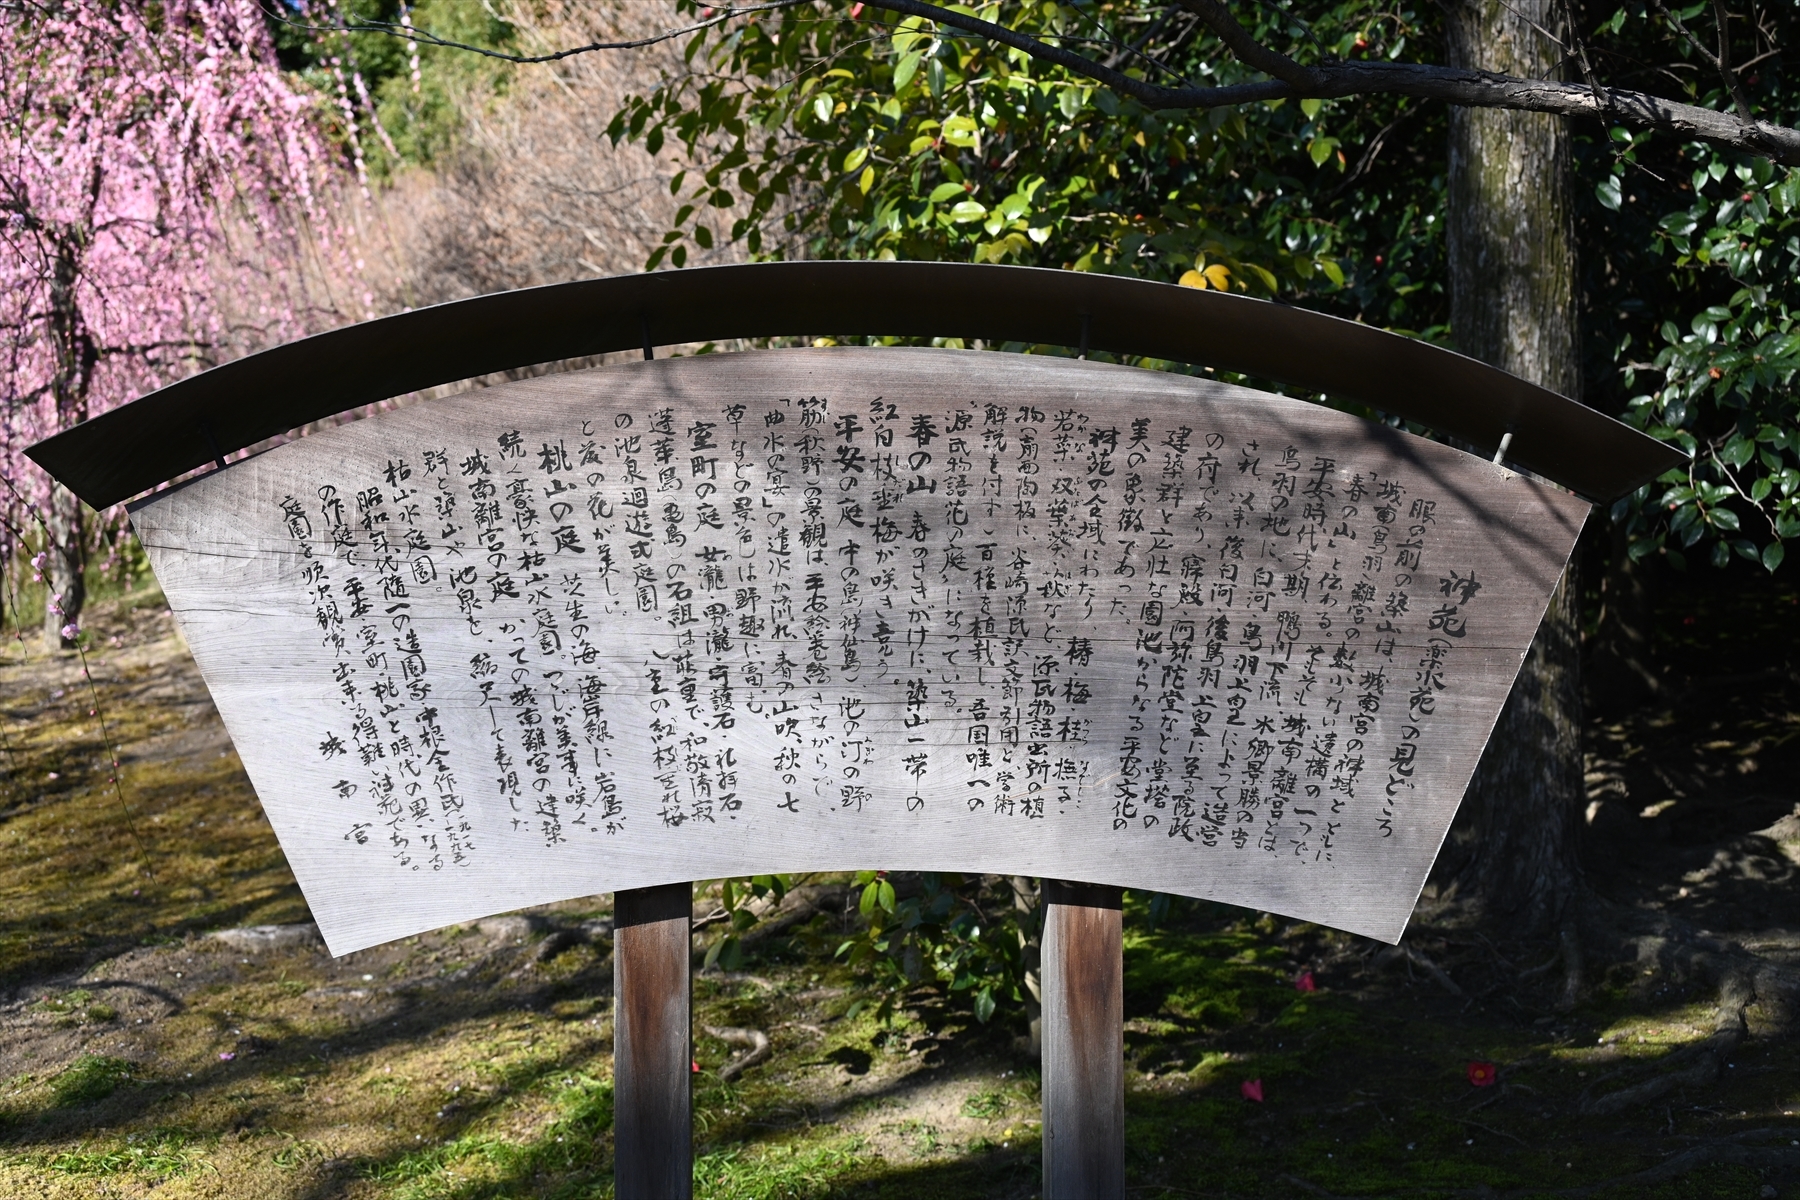 神苑(楽水苑)の見どころ
眼の前の築山は、城南宮の神域とともに、
「城南(鳥羽)離宮の数少ない遺構の一つで、
春の山」と伝わる。そもそも城南離宮とは、
平安時代末期、鴨川下流、水郷景勝の当
鳥羽の地に、白河・鳥羽上皇によって造営
され、以来、後白河・後鳥羽上皇に至る院政
の府であり、寝殿、阿弥陀堂など堂塔の
建築群と広壮な園池からなる平安文化の
美の象徴であった。
神苑の全域にわたり、椿・梅・桂・撫子・
若菜・双葉葵・萩など、源氏物語出所の植
物(扇面陶板に、谷崎源氏訳文節引用と、学術
解説を付す)百種を植栽し、吾国唯一の
"源氏物語花の庭"になっている。
春の山 春のさきがけに、築山一帯の
紅白枝垂梅が咲き競う。
平安の庭 中の島(神仙島)、池の汀の野
筋(秋野)の景観は、平安絵巻絵さながらで、
「曲水の宴」の遣水が流れ、春の山吹、秋の七
草などの景色は野趣に富む。
室町の庭 女瀧・男瀧・守護石・礼拝石・
蓬莱島(亀島)の石組は荘重で、和敬清寂
の池泉廻遊式庭園。三重の紅枝垂れ梅
と藤の花が美しい。
桃山の庭 芝生の海、海岸線に岩島が
続く豪快な枯山水庭園。つつじが美事に咲く。
城南離宮の庭 かつての城南離宮の建築
群と築山や池泉を、縮尺して表現した
枯山水庭園。
昭和年代随一の造園家 中根金作氏(一九一七～一九九五)
の作庭で、平安・室町・桃山と時代の異なる
庭園を順次観賞出来る得難い神苑である。
城南宮